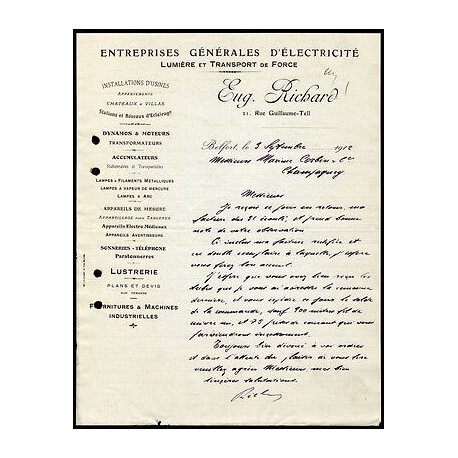 ENTREPRISES GÉNÉRALES D'ÉLECTRICITÉ
LUMIÈRE ET TRANSPORT DE FORCE
Eug. Richard
21, Rue Guillaume-Tell
INSTALLATIONS D'USINES
APPARTEMENTS
CHATEAUX & VILLAS
Stations et Réseaux d'Eclairage
DYNAMOS & MOTEURS
TRANSFORMATEURS
ACCUMULATEURS
Stationnaires et Transportables
LAMPES A FILAMENTS MÉTALLIQUES
LAMPES A VAPEUR DE MERCURE
LAMPES A ARC
APPAREILS DE MESURE
APPAREILLAGE POUR TABLEAUX
Appareils Electro Médicaux
APPAREILS AVERTISSEURS
SONNERIES - TÉLÉPHONE
Paratonnerres
LUSTRERIE
PLANS ET DEVIS
SUR DEMANDE
FOURNITURES & MACHINES
INDUSTRIELLES
Belfort, le 3 Septembre 1912
Messieurs
Champagney
Messieurs
Je reçois ce jour en retour, ma
facture du 31 écoulé, et prend bonne
note de votre observation
Ci inclus ma facture rectifiée et
en double exemplaire à laquelle j'espère
vous ferez bon accueil.
J'espère que vous avez bien reçu les
que je vous ai la semaine
dernière, et vous expédie ce jour le solde
de la commande, sauf 300 mètres fil de
et 75 que
parviendront incessamment.
Toujours bien dévoué à vos ordres
et dans l'attente du plaisir de vous lire
veuillez agréer Messieurs, mes bien
sincères salutations.